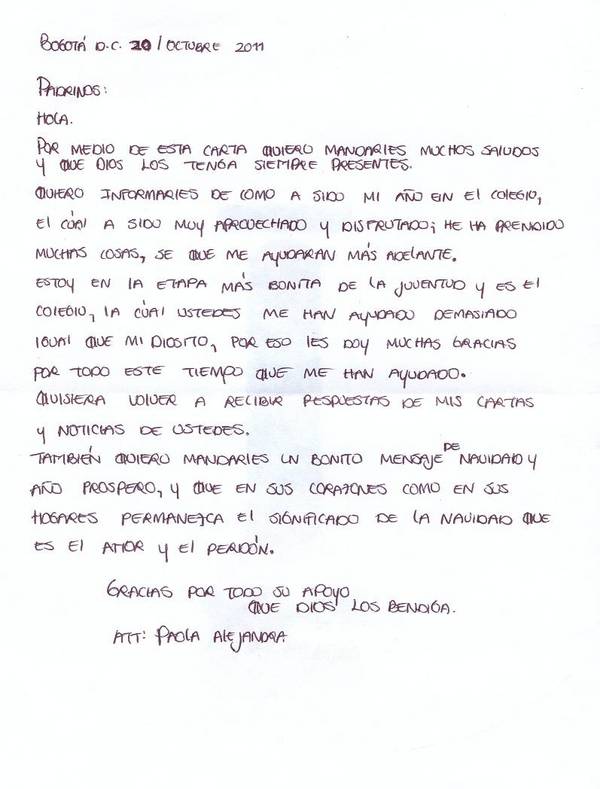 BOGOTÁ D.C. 20 / OCTUBRE 2011
PADRINOS:
HOLA.
POR MEDIO DE ESTA CARTA QUIERO MANDARLES MUCHOS SALUDOS
Y QUE DIOS LOS TENGA SIEMPRE PRESENTES.
QUIERO INFORMARLES DE COMO A SIDO MI AÑO EN EL COLEGIO,
EL CÚAL A SIDO MUY APROVECHADO Y DISFRUTADO; HE HA PRENDIDO
MUCHAS COSAS, SE QUE ME AYUDARAN MÁS ADELANTE.
ESTOY EN LA ETAPA MÁS BONITA DE LA JUVENTUD Y ES EL
COLEGIO, LA CÚAL USTEDES ME HAN AYUDADO DEMASIADO
IGUAL QUE MI DIOSITO, POR ESO LES DOY MUCHAS GRACIAS
POR TODO ESTE TIEMPO QUE ME HAN AYUDADO.
QUISIERA VOLVER A RECIBIR RESPUESTAS DE MIS CARTAS
Y NOTICIAS DE USTEDES.
TAMBIÉN QUIERO MANDARLES UN BONITO MENSAJE DE NAVIDAD Y
AÑO PROSPERO, Y QUE EN SUS CORAZONES COMO EN SUS
HOGARES PERMANEZCA EL SIGNIFICADO DE LA NAVIDAD QUE
ES EL AMOR Y EL PERDÓN.
GRACIAS POR TODO SU APOYO
QUE DIOS LOS BENDIGA.
ATT: PAOLA ALEJANDRA